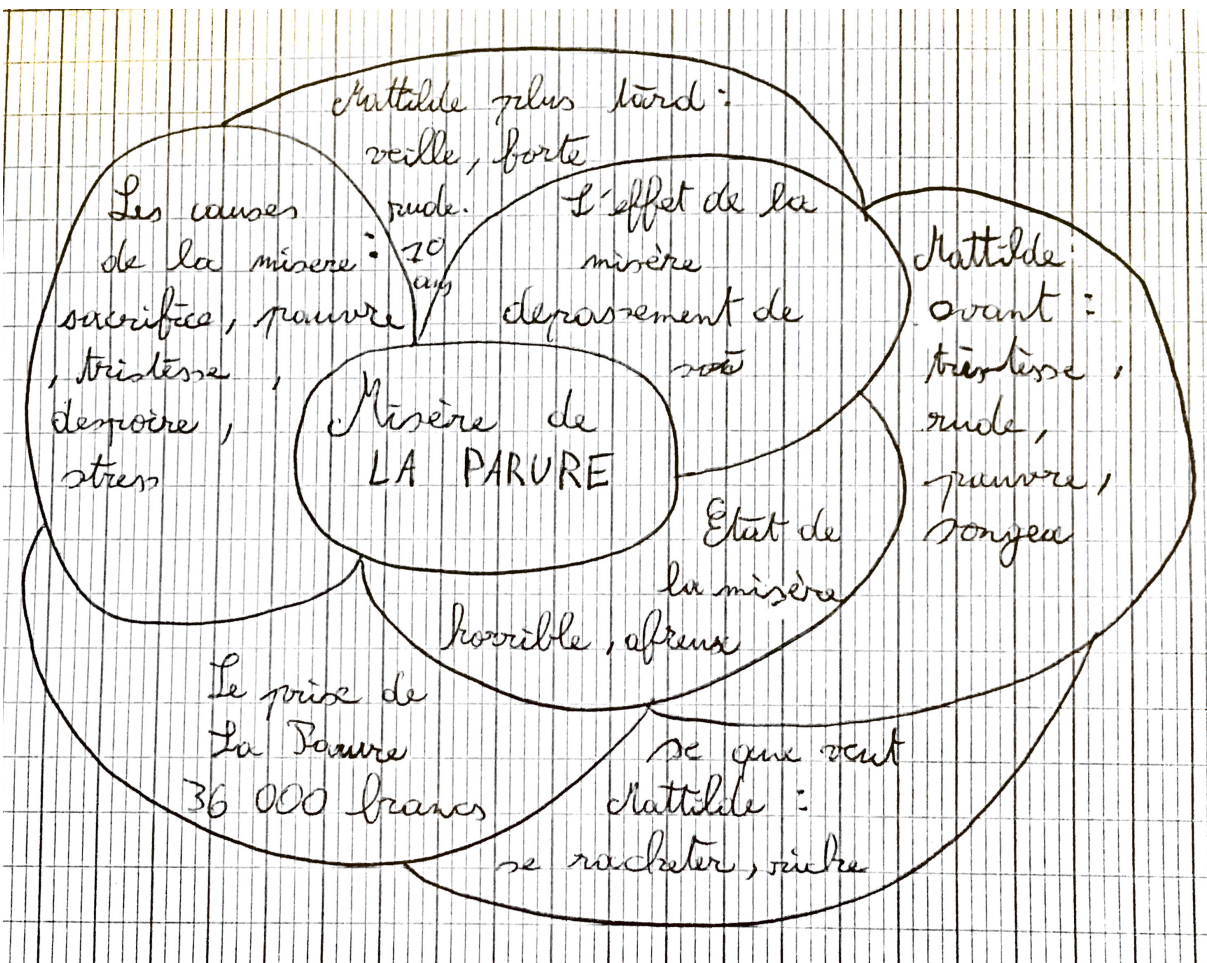 Mattilde plus tard :
veille, forte
rude.
10
ans
Les causes
de la misere :
sacrifice, pauvre
, tristèsse ,
despoire ,
stress
L'effet de la
misère
depassement de
soi
Mattilde :
avant :
tristèsse ,
rude,
pauvre ,
songea
Misère de
LA PARURE
Etat de
la misère
horrible , afreux
Le prix de
La Parure
36 000 francs
se que veut
Mattilde :
se racheter, riche